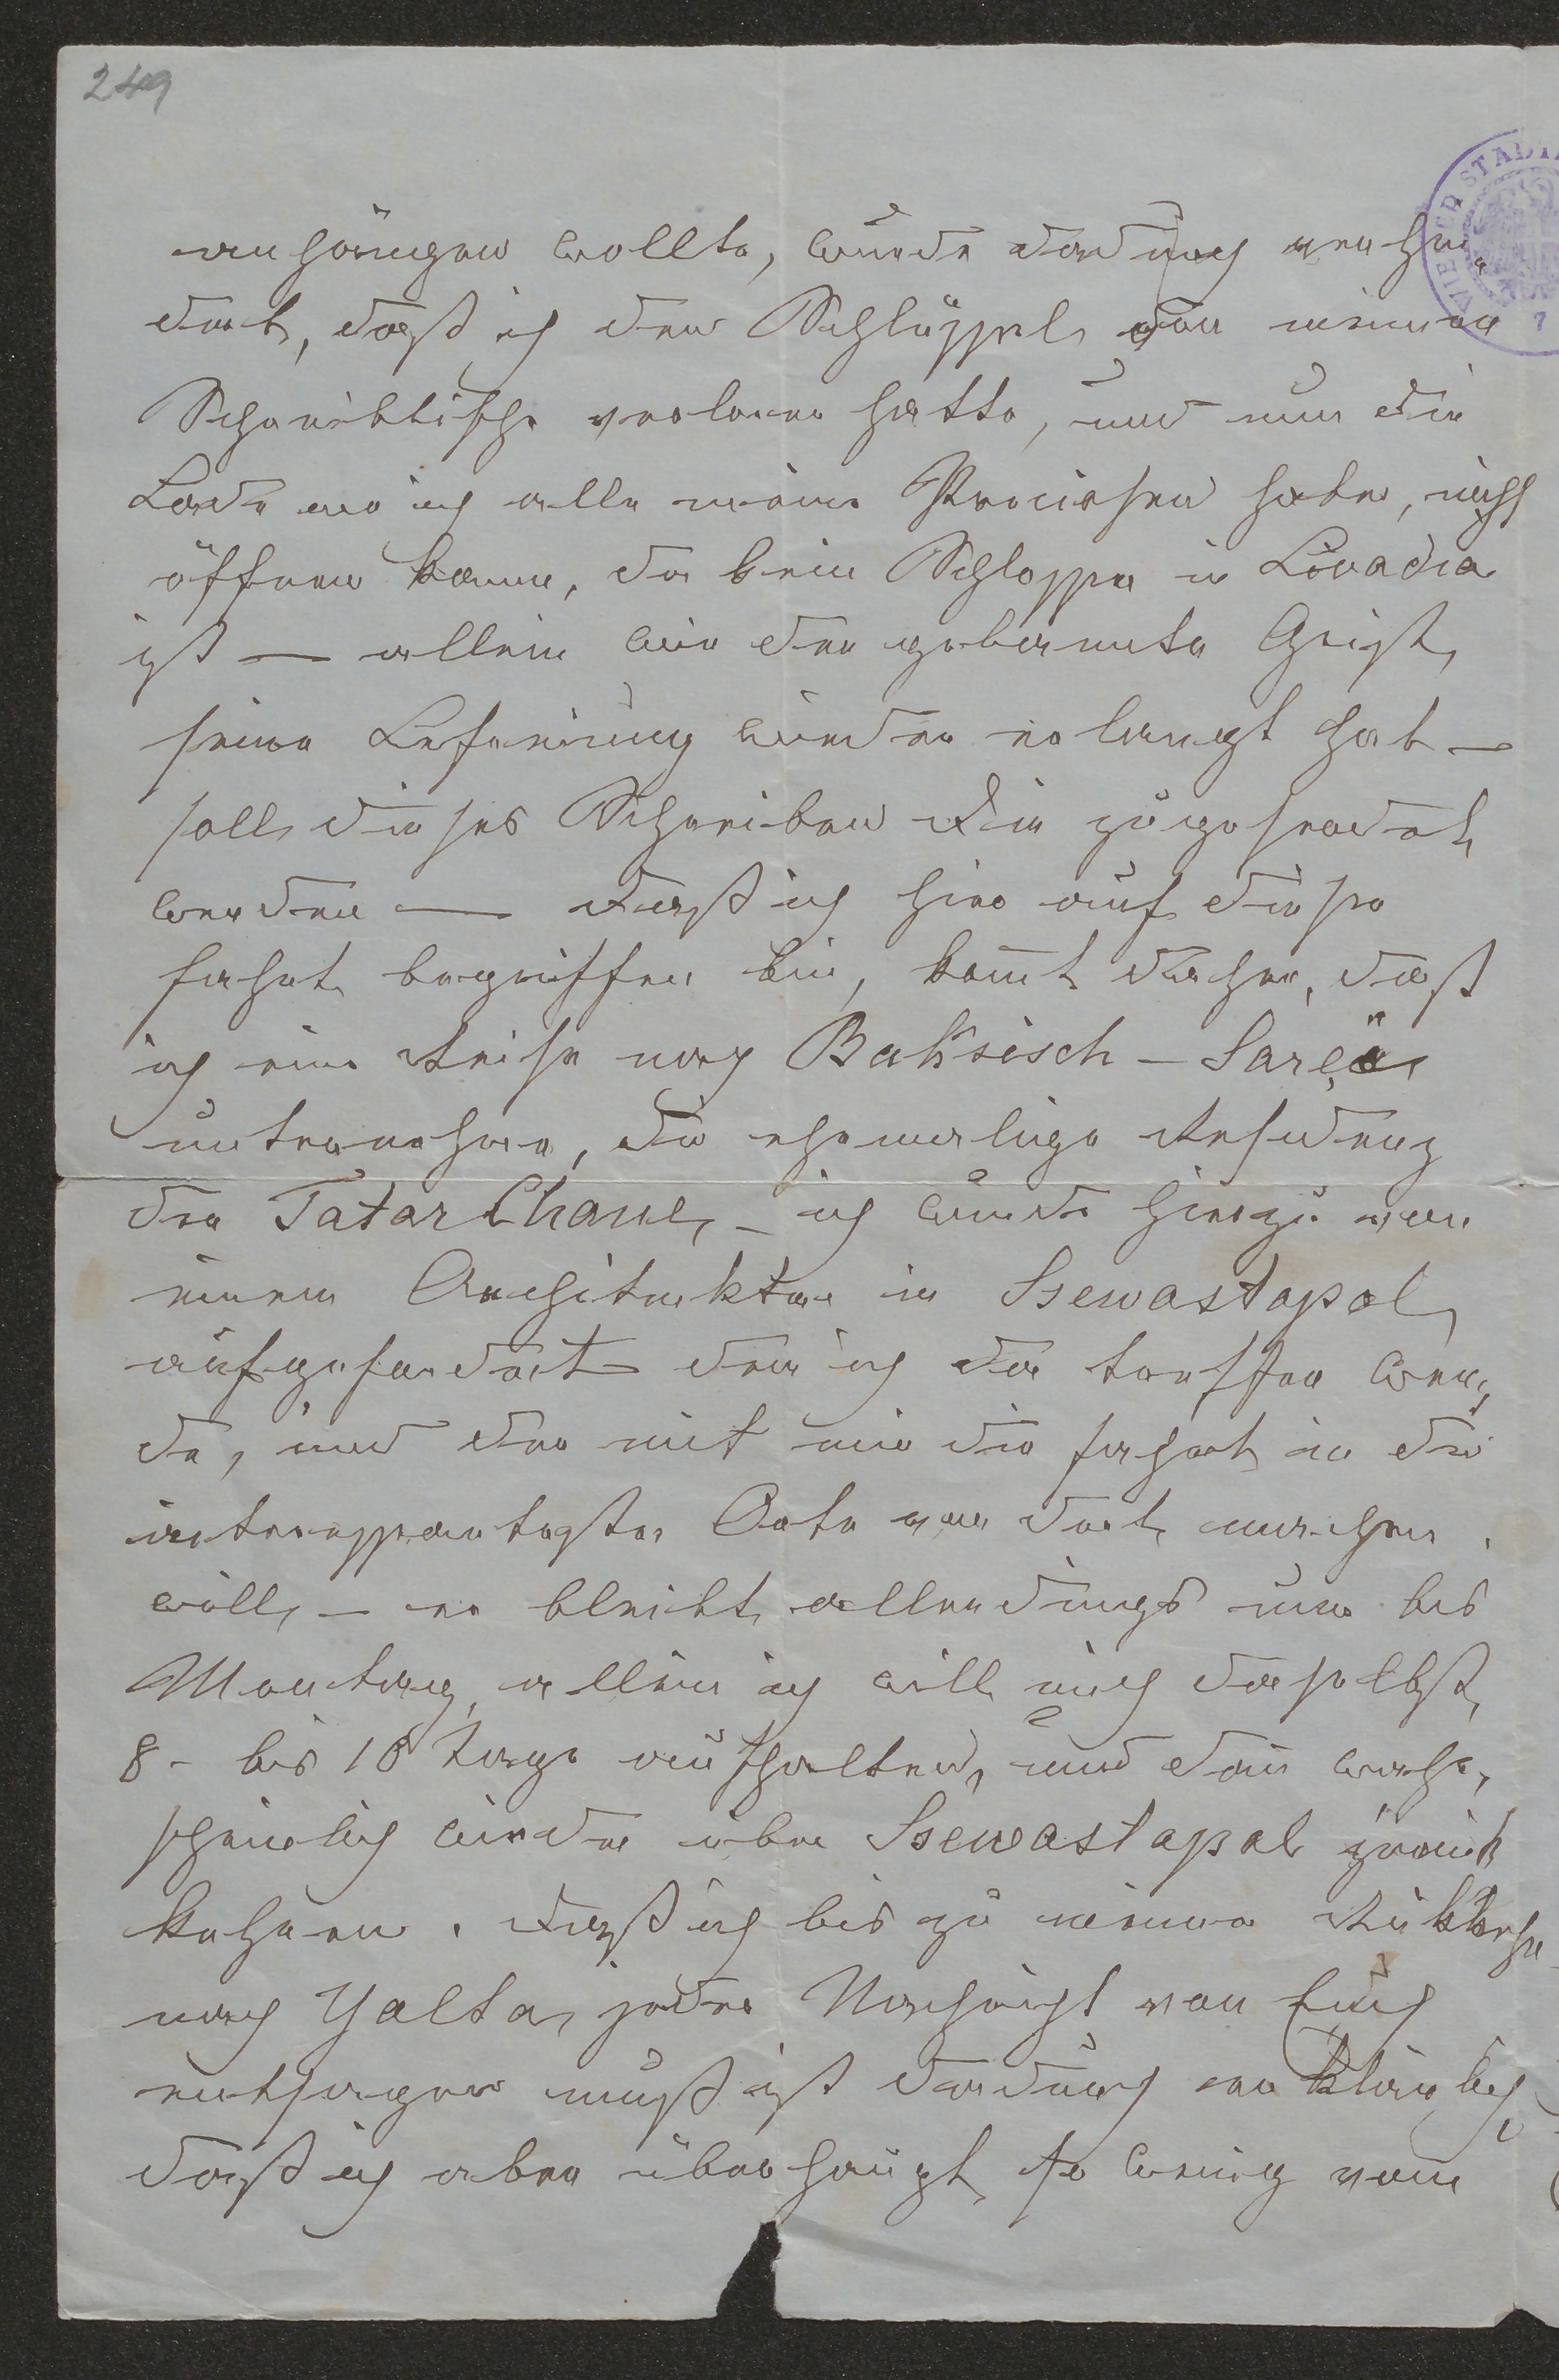 249
anhängen wollte, wurde dadurch verhin
dert, daß ich den Schlüssel von meinem
Schreibtische verloren hatte, und nun die
Lade wo ich alle meine Sachen habe, nicht
öffnen kann, da kein Schlosser in Livadia
ist — allein wie der gebannte Geist,
seine Befreiung wieder erlangt hat —
soll dieses Schreiben Dir zugesendet
werden — Daß ich hier auf dieser
Fahrt begriffen bin, komt daher, daß
ich eine Reise nach Baktsisch-Sarai
unternehme, die ehemalige Residenz
der Tatar Chane, – ich wurde hiezu von
einem Architekten in Ssewastapol
aufgefordert den ich da treffen wer
de, und der mit mir die Fahrt in die
interessantesten Orte von dort machen
will, – er bleibt allerdings nur bis
Montag, allein ich will mich daselbst,
8 – bis 10 Tage aufhalten, und dan wahr
scheinlich wieder über Ssewastapol zurück
kehren. Daß ich bis zu meiner Rükkehr
nach Yalta, jeder Nachricht von Euch
entsagen muß ist dadurch erklärlich,
daß ich aber überhaupt so wenig von
WIENER STADT
7